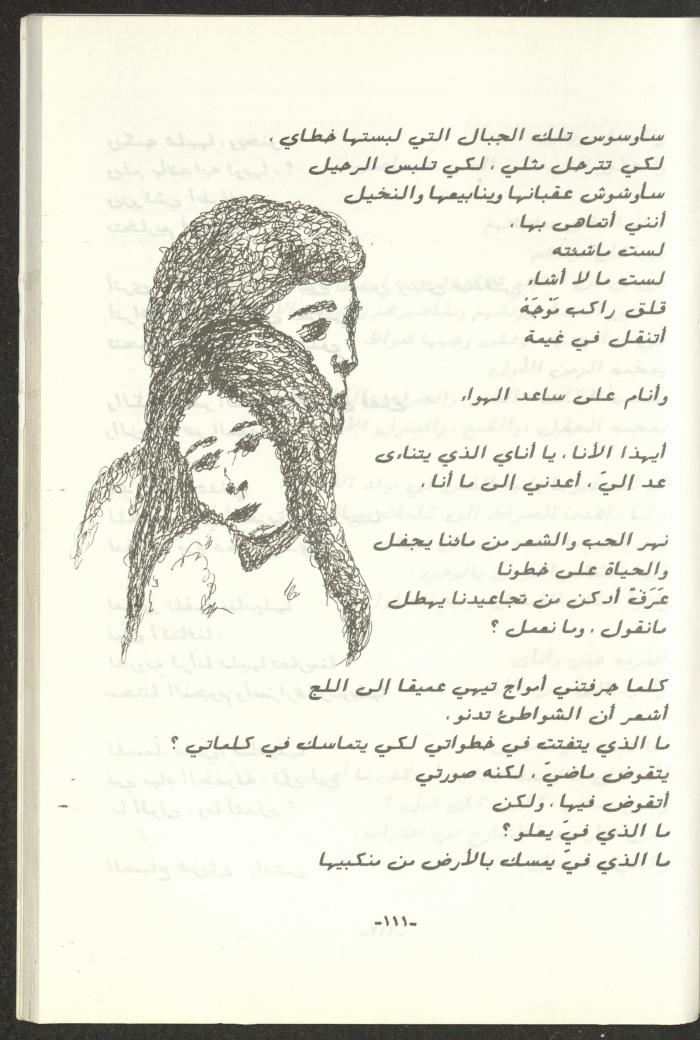 سأوسوس تلك الجبال التي لبستها خطاي ،
لكي تترحل مثلي ، لكي تلبس الرحيل
سأوشوش عقبانها وينابيعها والنخيل
أنني أتماهى بها ،
لست ماشئته
لست ما لا أشاء
قلق راكب مَوْجَهُ
أتنقل في غيمة
وأنام على ساعد الهواء
أيهذا الأنا ، يا أناي الذي يتناءى
عد إليّ ، أعدني إلى ما أنا ،
نهر الحب والشعر من مائنا يجفل
والحياة على خطونا
عَرَقٌ أدكن من تجاعيدنا يهطل
مانقول ، وما نعمل ؟
كلما جرفتني أمواج تيهي عميقا إلى اللج
أشعر أن الشواطئ تدنو ،
ما الذي يتفتت في خطواتي لكي يتماسك في كلماتي ؟
يتقوض ماضيّ ، لكنه صورتي
أتقوض فيها ، ولكن
ما الذي فيّ يعلو ؟
ما الذي فيّ يمسك بالأرض من منكبيها
-١١١-